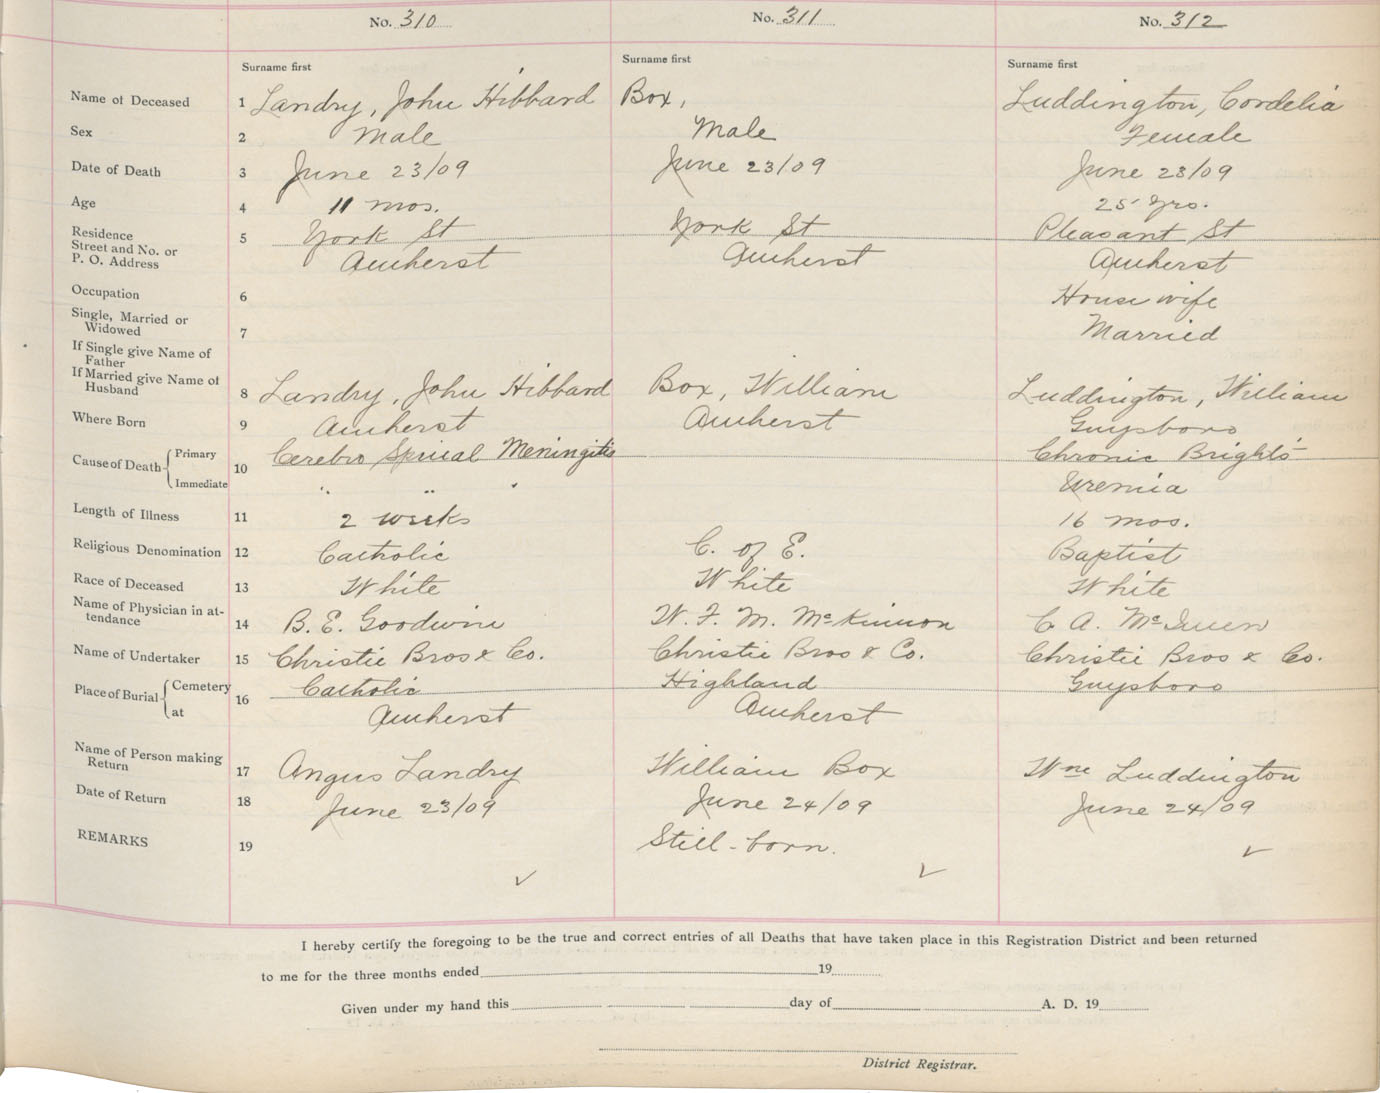 No. 310 No. 311 No. 312
Surname first Surname first Surname first
Name of Deceased 1 Landry, John Hibbard Box, Luddington, Cordelia
Sex 2 Male Male Female
Date of Death 3 June 23/09 June 23/09 June 23/09
Age 4 11 mos. 25 yrs.
Residence
Street and No. or 5 York St York St Pleasant St
P. O. Address Amherst Amherst Amherst
Occupation 6 House wife
Single, Married or
Widowed 7 Married
If Single give Name of
Father
If Married give Name of
Husband 8 Landry, John Hibbard Box, William Luddington, William
Where Born 9 Amherst Amherst Guysboro
Cause of Death Primary 10 Cerebro Spineal Meningitis Chronic Brights
Immediate " " " Uremia
Length of Illness 11 2 weeks 16 mos.
Religious Denomination 12 Catholic C. of E. Baptist
Race of Deceased 13 White White White
Name of Physician in at-
tendance 14 B. E. Goodwin W. F. M. McKinnon C. A. McQueen
Name of Undertaker 15 Christie Bros & Co. Christie Bros & Co. Christie Bros & Co.
Place of Burial Cemetery 16 Catholic Highland Guysboro
at Amherst Amherst
Name of Person making
Return 17 Angus Landry William Box Wm Luddington
Date of Return 18 June 23/09 June 24/09 June 24/09
REMARKS 19 Still-born.
I hereby certify the foregoing to be the true and correct entries of all Deaths that have taken place in this Registration District and been returned
to me for the three months ended 19
Given under my hand this day of A. D. 19
District Registrar.